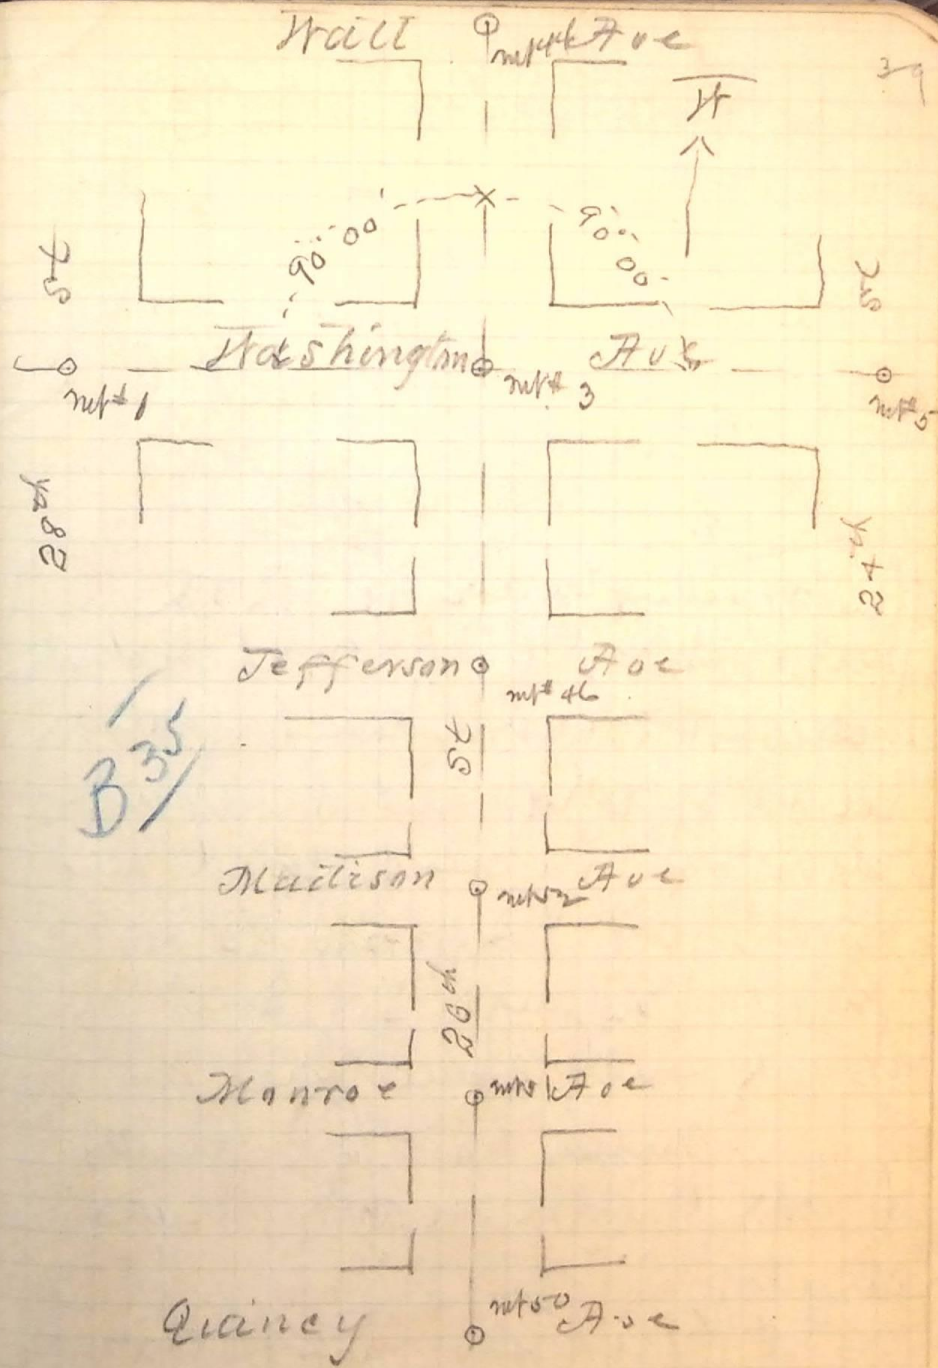 Wall mt#44 Ave
39
N
90° 00'
90° 00'
St
St
Washington Ave
mt#1
mt# 3
mt#5
28th
24th
Jefferson Ave
mt#46
St
B 35
Madison Ave
mt52
26th
Monroe mt51 Ave
Quincy mt50 Ave